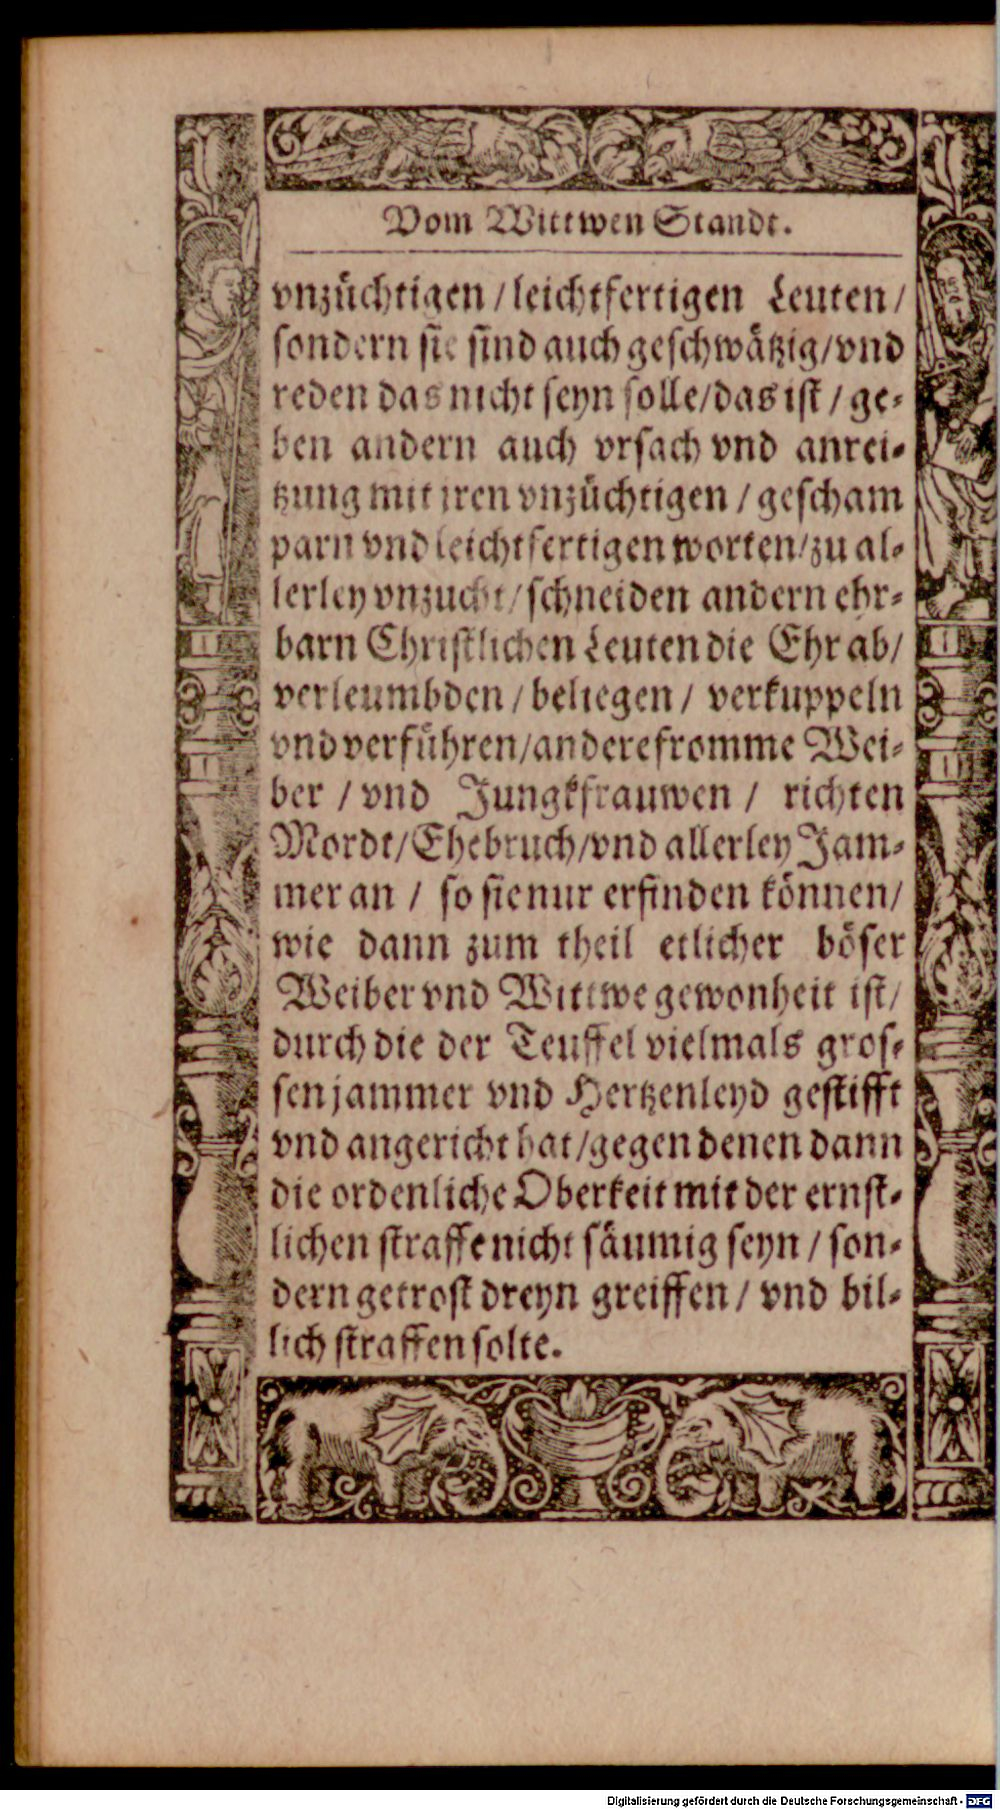 Vom Wittwen Standt.
vnzüchtigen / leichtfertigen Leuten /
sondern sie sind auch geschwätzig / vnd
reden das nicht seyn solle / das ist / ge-
ben andern auch vrsach vnd anrei-
tzung mit jren vnzüchtigen / gescham
parn vnd leichtfertigen worten / zu al-
lerley vnzucht / schneiden andern ehr-
barn Christlichen Leuten die Ehr ab /
verleumbden / beliegen / verkuppeln
vnd verführen / andere fromme Wei-
ber / vnd Jungkfrauwen / richten
Mordt / Ehebruch / vnd allerley Jam-
mer an / so sie nur erfinden können /
wie dann zum theil etlicher böser
Weiber vnd Wittwe gewonheit ist /
durch die der Teuffel vielmals gros-
sen jammer vnd Hertzenleyd gestifft
vnd angericht hat / gegen denen dann
die ordenliche Oberkeit mit der ernst-
lichen straffe nicht säumig seyn / son-
dern getrost dreyn greiffen / vnd bil-
lich straffen solte.
Digitalisierung gefördert durch die Deutsche Forschungsgemeinschaft - DFG